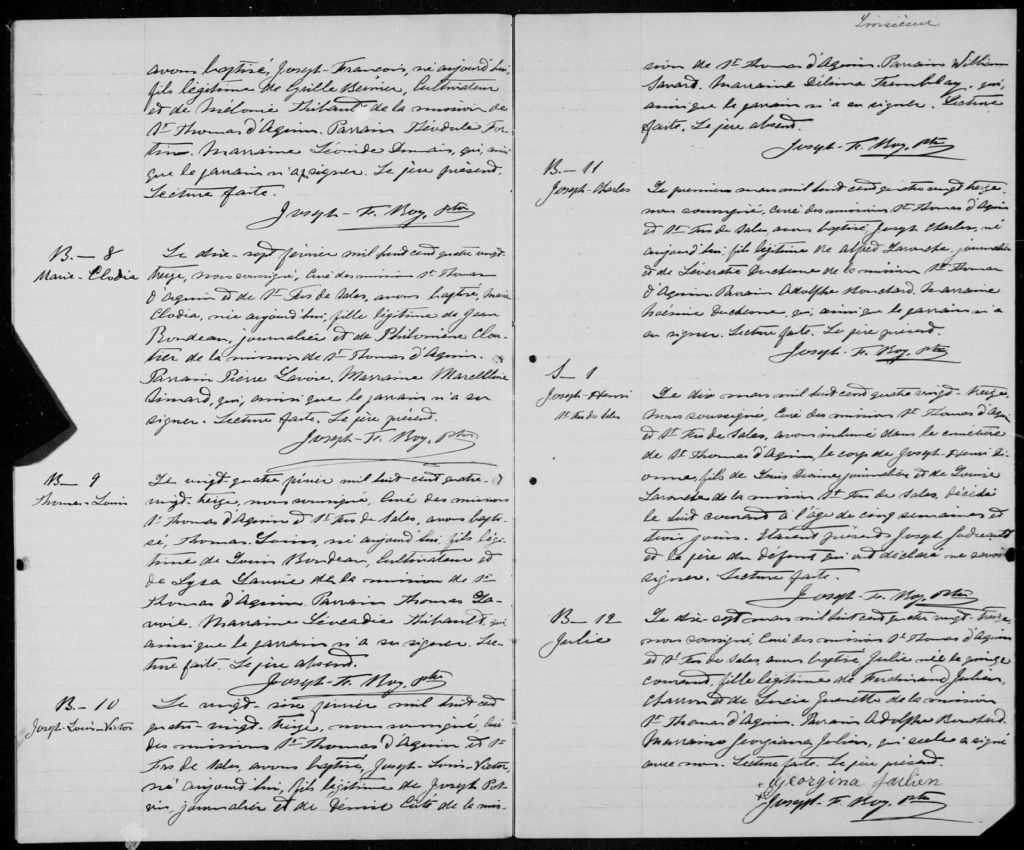 avons baptisé, Joseph-François, né aujourd'hui,
fils légitime de Grille Bernier, Cultivateur
et de Mélonie Thibault de la mission de
St Thomas d'Aquin. Parrain Théodule For-
tin. Marraine Léonide Dumais, qui, ainsi
que le parrain n'a su signer. Le père présent.
Lecture faite.
Joseph-F. Roy, Ptre
B.—8
Marie-Clodia
Le dix-sept février mil huit cent quatre vingt-
treize, nous soussigné, Curé des missions St Thomas
d'Aquin et de St Frs de Sales, avons baptisé, Marie
Clodia, née aujourd'hui, fille légitime de Jean
Rondeau, journalier et de Philomène Clou-
tier de la mission de St Thomas d'Aquin.
Parrain Pierre Lavoie. Marraine Marcelline
Simard, qui, ainsi que le parrain n'a su
signer. Lecture faite. Le père présent.
Joseph-F. Roy, Ptre
B—9
Thomas-Louis
Le vingt-quatre février mil huit-cent quatre-
vingt-treize, nous soussigné, Curé des missions
St Thomas d'Aquin et St Frs de Sales, avons bapti-
sé, Thomas-Louis, né aujourd'hui, fils légi-
time de Louis Bondeau, Cultivateur et
de Lysa Lavoie de la mission de St
Thomas d'Aquin. Parrain Thomas La-
voie. Marraine Léocadie Thibault, qui
ainsi que le parrain n'a su signer. Lec-
ture faite. Le père absent.
Joseph-F. Roy, Ptre
B.—10
Joseph-Louis-Victor
Le vingt-six février mil huit cent
quatre-vingt-treize, nous soussigné, Curé
des missions St Thomas d'Aquin et St
Frs de Sales, avons baptisé, Joseph-Louis-Victor,
né aujourd'hui, fils légitime de Joseph Pot-
vin, journalier et de Jennie Côté de la mis-
Troisième
sion de St Thomas d'Aquin. Parrain William
Savard. Marraine Délima Tremblay, qui,
ainsi que le parrain n'a su signer. Lecture
faite. Le père absent.
Joseph-F. Roy, Ptre
B.—11
Joseph-Charles
Le premier mars mil huit cent quatre vingt treize,
nous soussigné, Curé des missions St Thomas d'Aquin
et St Frs de Sales, avons baptisé, Joseph Charles, né
aujourd'hui, fils légitime de Alfred Larouche, journalier
et de Duchesne de la mission St Thomas
d'Aquin. Parrain Adolphe Bouchard. Marraine
Noémie Duchesne, qui, ainsi que le parrain n'a
su signer. Lecture faite. Le père présent.
Joseph-F. Roy, Ptre
S—1
Joseph-Henri
St Frs de Sales
Le dix mars mil huit cent quatre vingt-treize,
nous soussigné, Curé des missions St Thomas d'Aquin
et St Frs de Sales, avons inhumé dans le cimetière
de St Thomas d'Aquin, le corps de Joseph-Henri
fils de Louis journalier et de Louise
Larouche de la mission St Frs de Sales, décédé
le huit courant à l'âge de cinq semaines et
trois jours. Etaient présents Joseph
et le père du défunt qui ont déclaré ne savoir
signer. Lecture faite.
Joseph-F. Roy, Ptre
B—12
Julie
Le dix-sept mars mil huit cent quatre vingt-treize,
nous soussigné, Curé des missions St Thomas d'Aquin
et St Frs de Sales, avons baptisé, Julie née le quinze
courant, fille légitime de Ferdinand Julien,
Charron et de Lucie Guenette de la mission
St Thomas d'Aquin. Parrain Adolphe Bouchard.
Marraine Georgiana Julien, qui seule a signé
avec nous. Lecture faite. Le père présent.
Georgina Julien
Joseph-F. Roy, Ptre